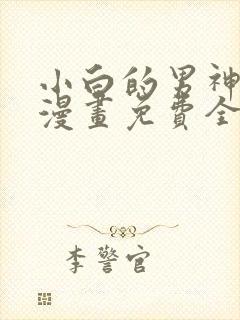 小白的男神
漫畫免費全
李警官